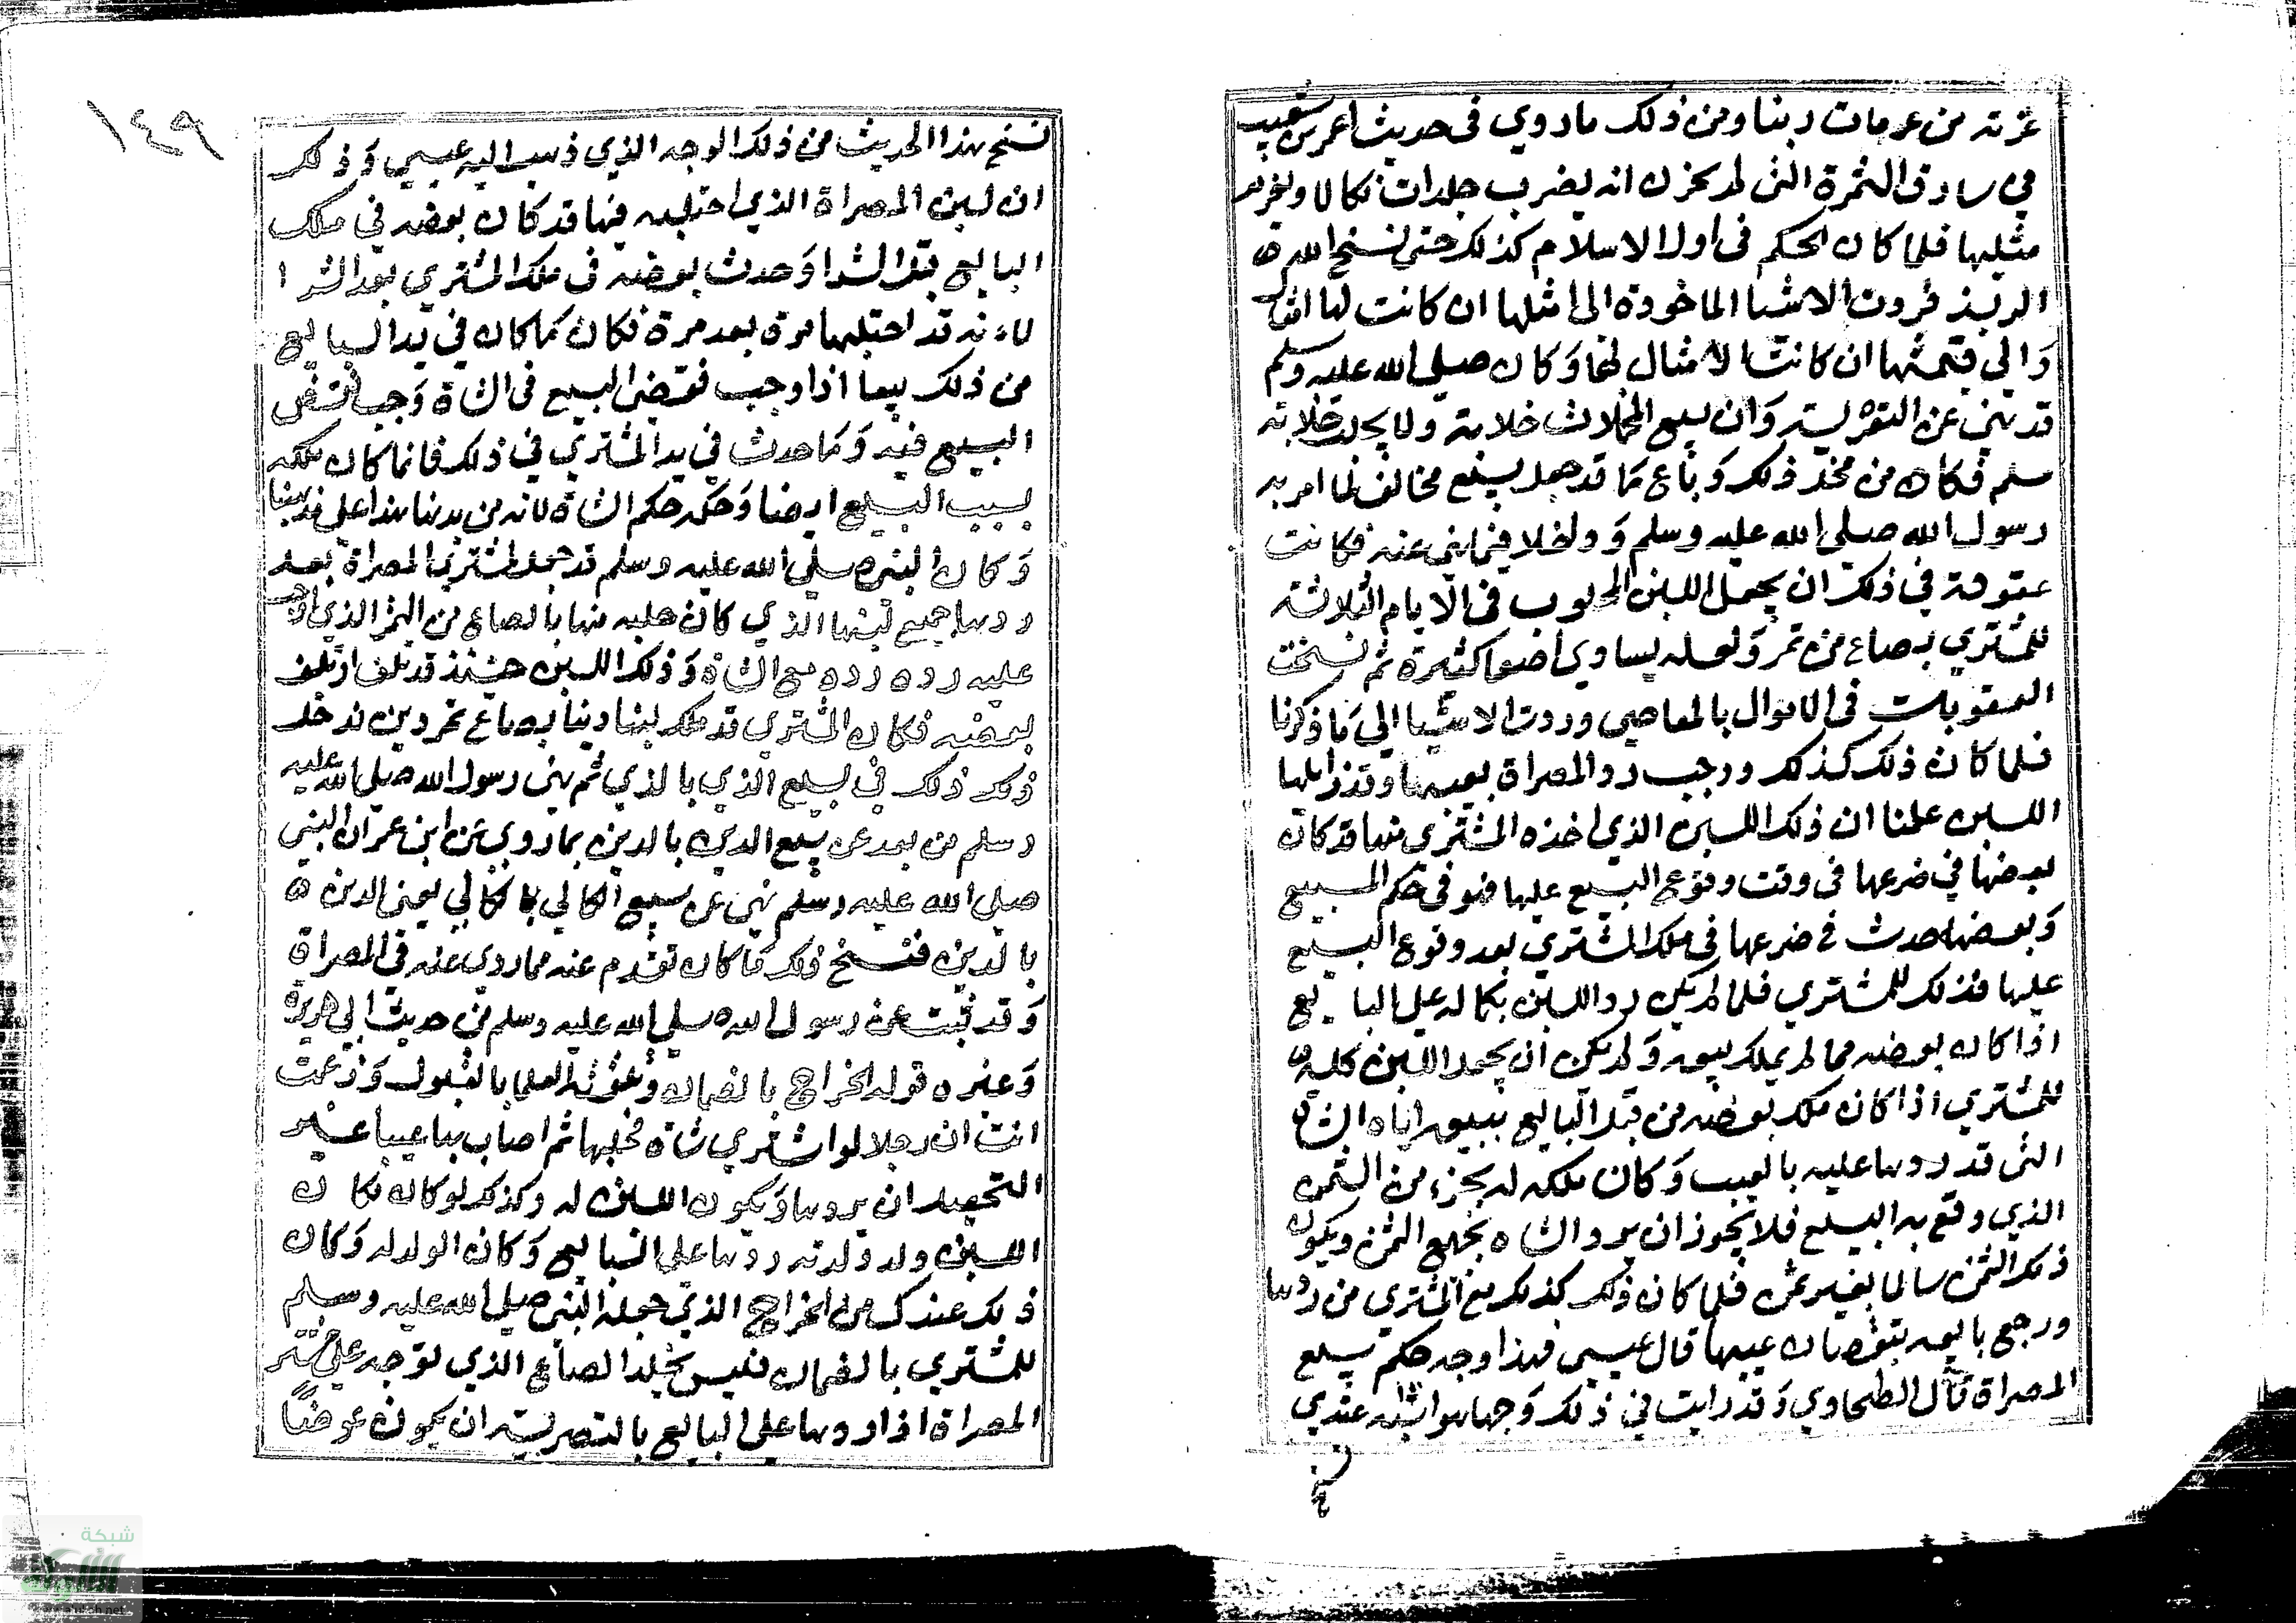 عزمة من عزمات ربنا ومن ذلك ما روي فى حديث عمرو بن شعيب
في سارق الثمرة التى لم تحرز انه يضرب جلدات نكالا ويغرم
مثليها فلما كان الحكم فى اول الاسلام كذلك حتى نسخ الله
الربا فردت الاشيا الماخوذة الى امثلها ان كانت لها امثال
وَالي قيمتها ان كانت لا مثال لها وَكان صلى الله عليه وسلم
قد نهي عن التصرية وَان بيع المحفلات خلابة ولا يحل خلابة
مسلم فكان من فعل ذلك وَباع مَا قد جعل ببيعه مخالف لما امر به
رسول الله صلى الله عليه وسلم وَداخلا فيما نهي عنه فكانت
عقوبة في ذلك ان يجعل اللبن المحلوب فى الايام الثلاثة
للمشتري بصاع من تمر وَلعله يساوي اصعا كثيرة ثم نسخت
العقوبات فى الاموال بالمعاصي وردت الاشيا الي مَا ذكرنا
فلما كان ذلك كذلك ووجب رد المصراة بعينها وقد زايلها
اللبن علمنا ان ذلك اللبن الذي اخذه المشتري منها قد كان
بعضها في ضرعها فى وقت وقوع البيع عليها فهو فى حكم المبيع
وَبعضها حدث في ضرعها في ملك المشتري بعد وقوع البيع
عليها فذلك للمشتري فلما لم يكن رد اللبن بكماله علي البايع
اذا كان بعضه مما لم يملك بيعه وَلم يكن ان يجعل اللبن كله
للمشتري اذا كان ملك بعضه من قبل البايع ببيعه اياه الشاة
التى قد ردها عليه بالعيب وَكان ملكه له بجزء من الثمن
الذي وقع به البيع فلا يجوز ان يرد الشاه بجميع الثمن ويكون
ذلك الثمن سالما بغير ثمن فلما كان ذلك كذلك منع المشتري من ردها
ورجع بايعه بنقصان عيبها قال عيسي فهذا وجه حكم بيع
المصراة قال الطحاوي وَقد رايت في ذلك وَجها هو اشبه عندي
١٤٩
نسخ هذا الحديث من ذلك الوجه الذي ذهب اليه عيسي وَذلك
ان لبن المصراة الذي احتلبه فيها قد كان بعضه في ملك
البايع قبل الشرا وَحدث بعضه فى ملك المشتري بعد الشرا
لانه قد احتلبها مرة بعد مرة فكان مَا كان في يد البايع
من ذلك مبيعا اذا وجب نقض البيع فى الشاة وَجب نقض
البيع فيه وَمَا حدث في يد المشتري في ذلك فانما كان ملكه
بسبب البيع ايضا وَحكمه حكم الشاة لانه من بدنها هذا علي مذهبنا
وَكان النبي صلي الله عليه وسلم قد جعل لمشتري المصراة بعد
ردها جميع لبنها الذي كان حلبه منها بالصاع من التمر الذي اوجب
عليه رده مع الشاة وَذلك اللبن حينئذ قد تلف او تلف
بعضه فكان المشتري قد ملك لبنا دينا بصاع تمر دين فدخل
ذلك في بيع الدين بالدين ثم نهي رسول الله صلي الله عليه
وسلم من بعد عن بيع الدين بالدين بما روي عن ابن عمر ان النبي
صلي الله عليه وسلم نهي عن بيع الكالي بالكالي يعني الدين
بالدين فنسخ ذلك مَا كان تقدم عنه مما روي عنه في المصراة
وَقد ثبت عن رسول الله صلي الله عليه وسلم من حديث ابي هريرة
وَغيره قوله الخراج بالضمان وَتلقته العلما بالقبول وَزعمت
انت ان رجلا لو اشتري شاة فحلبها ثم اصاب بها عيبا غير
التحفيل ان يردها وَيكون اللبن له وكذلك لو كان مكان
اللبن ولد ولدته ردها علي البايع وَكان الولد له وَكان
ذلك عندك من الخراج الذي جعله النبي صلي الله عليه وسلم
للمشتري بالضمان فليس يخلو الصاع الذي توجبه علي مشتري
المصراة اذا ردها علي البايع بالتصرية ان يكون عوضًا
شبكة
الألوكة